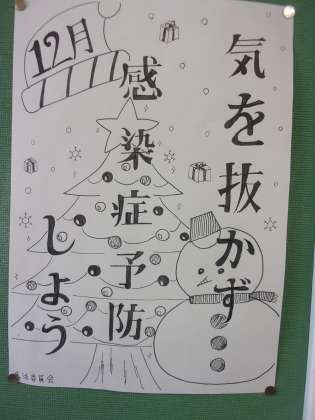 12月
気を抜かず
感染症予防
しよう
委員会